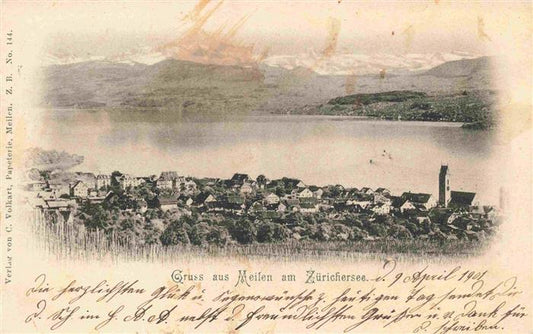 Verlag von C. Volkart, Papeterie, Meilen. Z. B. No. 144.
Gruss aus Meilen am Zürichersee. d. 9 April 1901
Die herzlichsten Glück u. Segenswünsche z. heutigen Tag sendet dir
nebst d freundlichsten Grüßen u. dem